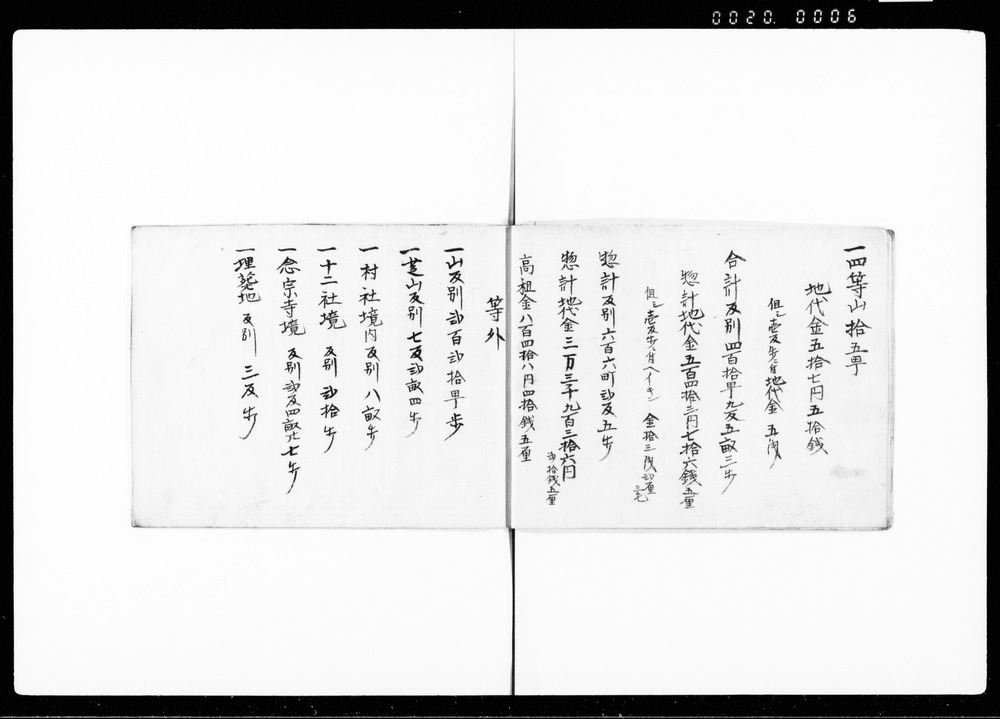 0020. 0006
一四等山拾五町
地代金五拾七円五拾銭
但シ壱反歩ニ付地代金 五銭
合計反別四百拾町九反五畝三歩
惣計地代金五百四拾三円七拾六銭五厘
但シ壱反歩ニ付ヘイキン 金拾三銭弐厘三毛
惣計反別六百六町弐反五歩
惣計地代金三万三千九百三拾六円
弐拾銭五厘
高租金八百四拾八円四拾銭五厘
等外
一山反別弐百弐拾町歩
一芝山反別 七反弐畝四歩
一村社境内反別 八畝歩
一十二社境 反別 弐拾歩
一念宗寺境 反別弐反四畝廿七歩
一埋葬地 反別 三反歩